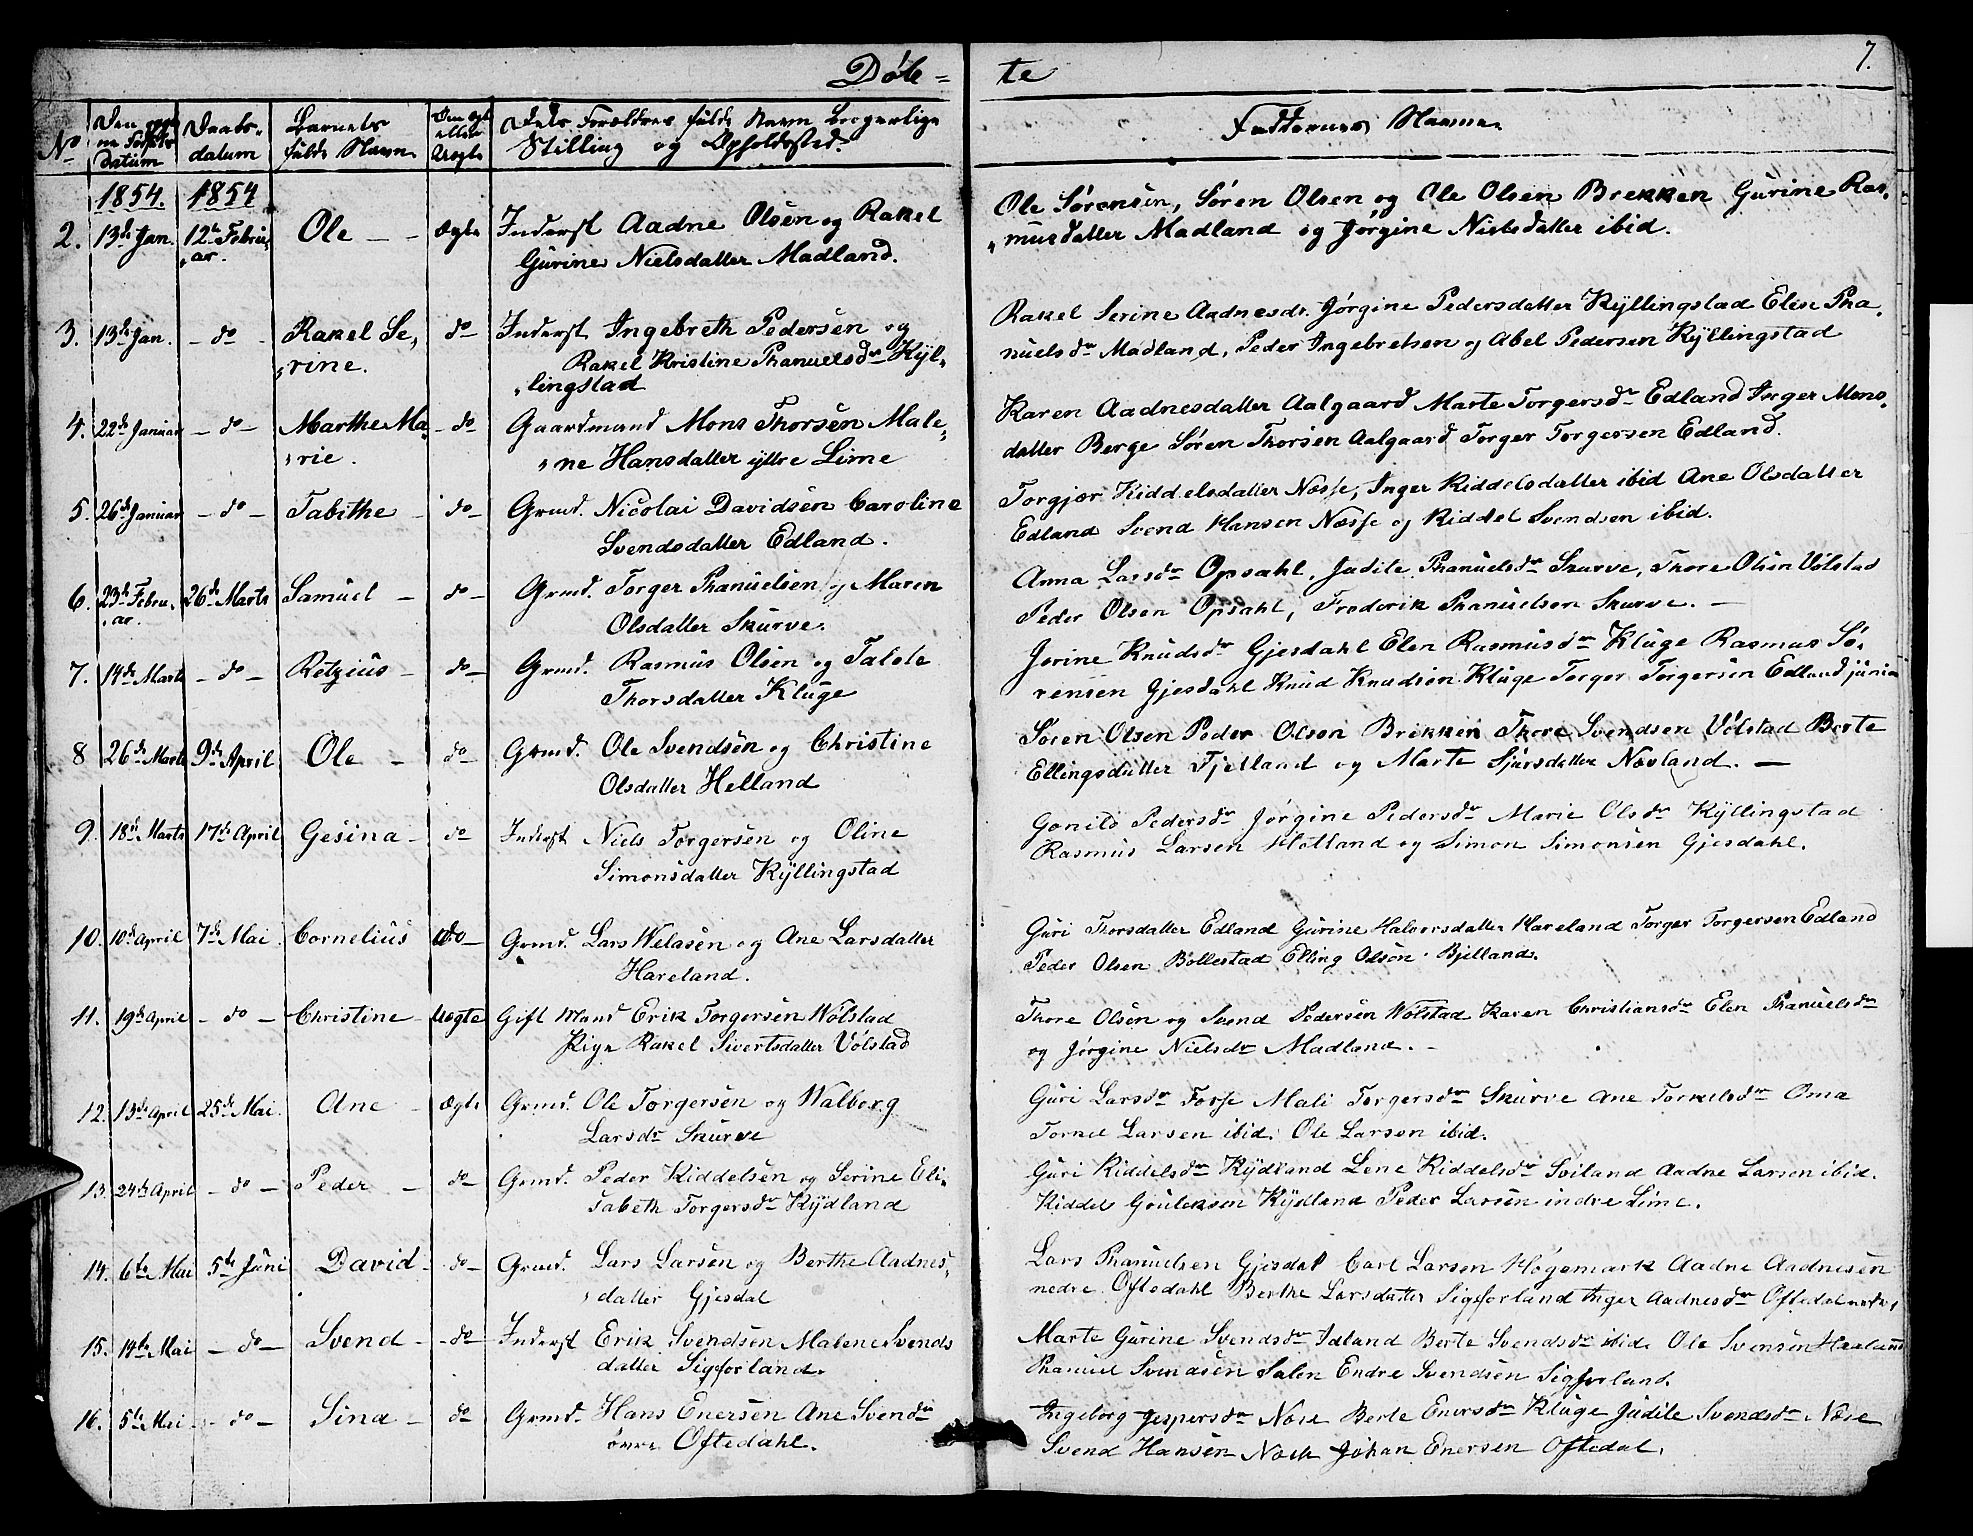 Døb= te
7.
No Datum Daabs datum Barnets fulde Navn Dets Forældres fulde Navn borgerlige Stilling og Opholdssted. Faddernes Navne
1854. 1854
2. 13de Jan. 12te Febru, Ole - Ægte Inderst Aadne Olsen og Rakel Ole Sørensen, Søren Olsen og Ole Olsen Brekken Gurine Ras,
,ar. Gurine Nielsdatter Madland. ,musdatter Madland og Jørgine Nielsdatter ibid.
3. 13de Jan. - do - Rakel Se, do - Inderst Ingebreth Pedersen og Rakel Serine Aadnesdr. Jørgine Pedersdatter Kyllingstad Elen Pha,
,rine. Rakel Kristine Phanuelsdr Kyl, nuelsdr Madland, Peder Ingebretsen og Abel Pedersen Kyllingstad
,lingstad
4. 22de Januar - do - Marthe Ma, - do Gaardmand Mons Thorsen Male, Karen Aadnesdatter Aalgaard Marte Torgersdr Edland Inger Mons,
,rie. ,ne Hansdatter yttre Lime datter Berge Søren Thorsen Aalgaard Torger Torgersen Edland.
5. 26de Januar - do - Tabithe - do - Grmd. Nicolai Davidsen Caroline Torgjær Kiddelsdatter Næsse, Inger Kiddelsdatter ibid Ane Olsdatter
Svendsdatter Edland. Edland Svend Hansen Næsse og Kiddel Svendsen ibid.
6. 23de Febru, 26de Marts Samuel - do - Grmd. Torger Phanuelsen og Maren Anna Larsdr Opsahl, Judite Phanuelsdr Skurve, Thore Olsen Vølstad
,ar. Olsdatter Skurve. Peder Olsen Opsahl, Frederik Phanuelsen Skurve. -
7. 14de Marts - do - Retzius - do - Grmd. Rasmus Olsen og Talele Jorine Knudsdr Gjesdahl Elen Rasmusdr Kluge Rasmus Sø,
Thorsdatter Kluge rensen Gjesdahl Knud Knudsen Kluge Torger Torgersen Edland junior
8 26de Marts 9de April Ole - do Grmd. Ole Svendsen og Christine Søren Olsen Peder Olsen Brekken Thore Svendsen Vølstad Berte
Olsdatter Helland Ellingsdatter Fjelland og Marte Sjursdatter Nevland. -
9. 18de Marts 17de April Gesina - do Inderst Niels Torgersen og Oline Gonild Pedersdr Jørgine Pedersdr Marie Olsdr Kyllingstad
Simonsdatter Kyllingstad Rasmus Larsen Hotland og Simon Simonsen Gjesdahl.
10. 10de April 7de Mai Cornelius do - Grmd. Lars Welasen og Ane Larsdatter Guri Thorsdatter Edland Gurine Halvorsdatter Hareland Torger Torgersen Edland
Hareland. Peder Olsen Bollestad Elling Olsen Bjelland.
11. 19de April - do - Christine Uægte Gift Mand Erik Torgersen Wølstad Thore Olsen og Svend Pedersen Wølstad Karen Christiansdr Elen Phanuelsdr
Pige Rakel Sivertsdatter Vølstad og Jørgine Nielsdr Madland. -
12. 13de April 25de Mai. Ane - Ægte Grmd. Ole Torgersen og Walborg Guri Larsdr Fosse Mali Torgersdr Skurve Ane Torkelsdr Oma
Larsdr Skurve Torkel Larsen ibid. Ole Larsen ibid.
13. 24de April - do - Peder - do - Grmd. Peder Kiddelsen og Serine Eli, Guri Kiddelsdr Kydland Lene Kiddelsdr Sviland Aadne Larsen ibid.
sabeth Torgersdr Kydland Kiddel Gouleksen Kydland Peder Larsen indre Lime.
14. 6te Mai 5te Juni David - do - Grmd. Lars Larsen og Berthe Aadnes, Lars Phanuelsen Gjesdal Carl Larsen Høgemark Aadne Aadnesen
,datter Gjesdal nedre Oftedahl Berthe Larsdatter Sigforland Inger Aadnesdr Oftedal nedre
15. 14de Mai - do - Svend - - do - Inderst Erik Svendsen Malene Svends Marte Gurine Svendsdr Idland Berte Svendsdr ibid. Ole Svensen Haaland
datter Sigforland. Phanuel Svendsen Salen Endre Svendsen Sigforland.
16. 5te Mai - do - Sina - do Grmd. Hans Enersen Ane Svendsdr Ingeborg Jespersdr Nøse Berte Enersdr Kluge Judite Svendsdr Nøse
øvre Oftedahl. Svend Hansen Johan Enersen Oftedal.